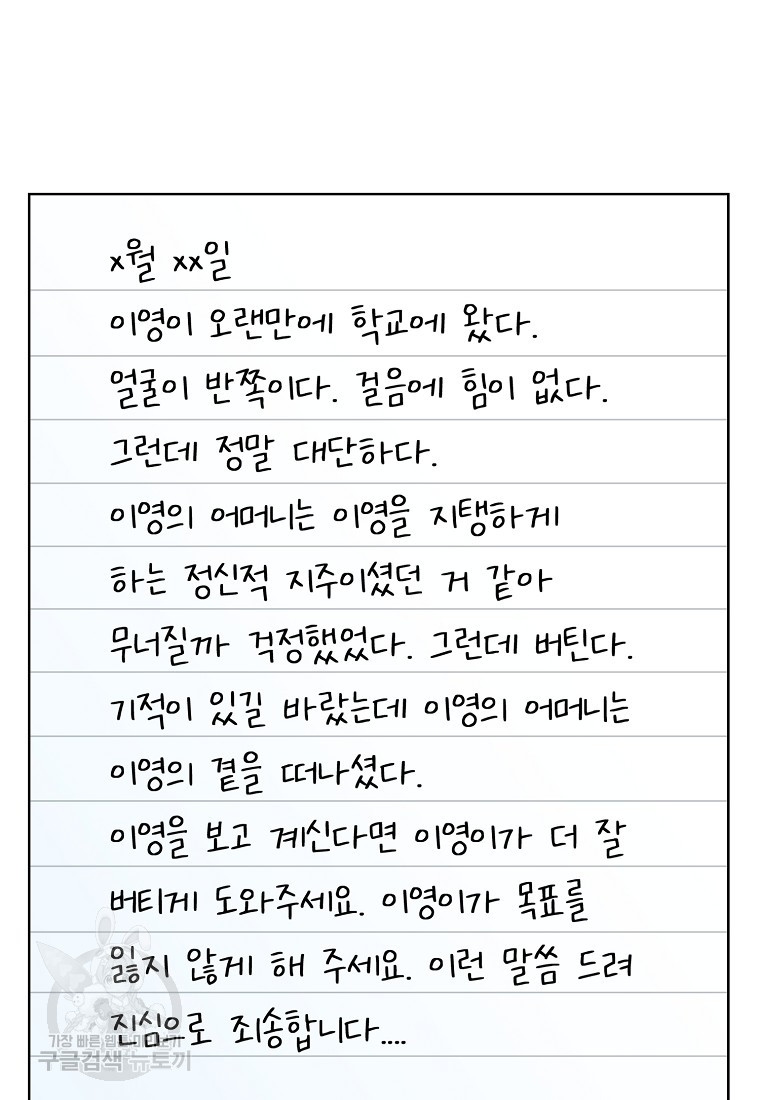 x월 xx일
이영이 오랜만에 학교에 왔다.
얼굴이 반쪽이다. 걸음에 힘이 없다.
그런데 정말 대단하다.
이영의 어머니는 이영을 지탱하게
하는 정신적 지주이셨던 거 같아
무너질까 걱정했었다. 그런데 버틴다.
기적이 있길 바랐는데 이영의 어머니는
이영의 곁을 떠나셨다.
이영을 보고 계신다면 이영이가 더 잘
버티게 도와주세요. 이영이가 목표를
잃지 않게 해 주세요. 이런 말씀 드려
진심으로 죄송합니다....
가장 빠른 웹툰 미리보기
구글검색 뉴토끼